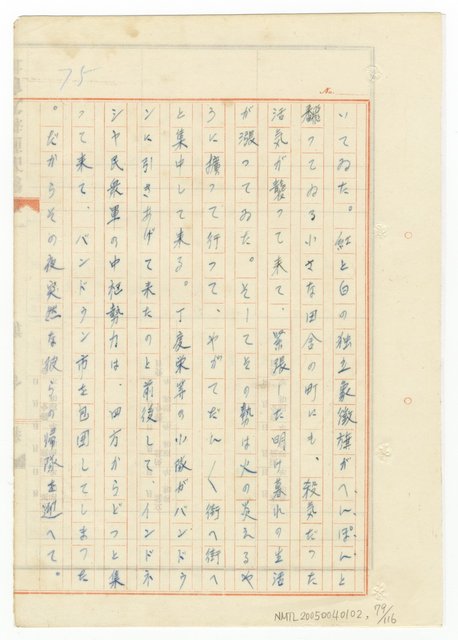 75
No.
いてゐた。紅と白の独立象徴旗がへんぽんと
翻つてゐる小さな田舎の町にも、殺気だつた
活気が襲つて来て、緊張した明け暮れの生活
が漲つてゐた。そしてその勢は火の炎えるや
うに擴つて行つて、やがてだん／＼街へ街へ
と集中して来る。丁度栄等の小隊がバンドウ
ンに引きあげて来たのと前後して、インドネ
シヤ民衆軍の中枢勢力は、四方からどつと集
つて来て、バンドウン市を包囲してしまつた
。だからその夜突然な彼らの帰隊を迎へて。
NMTL20050040102, 79/116